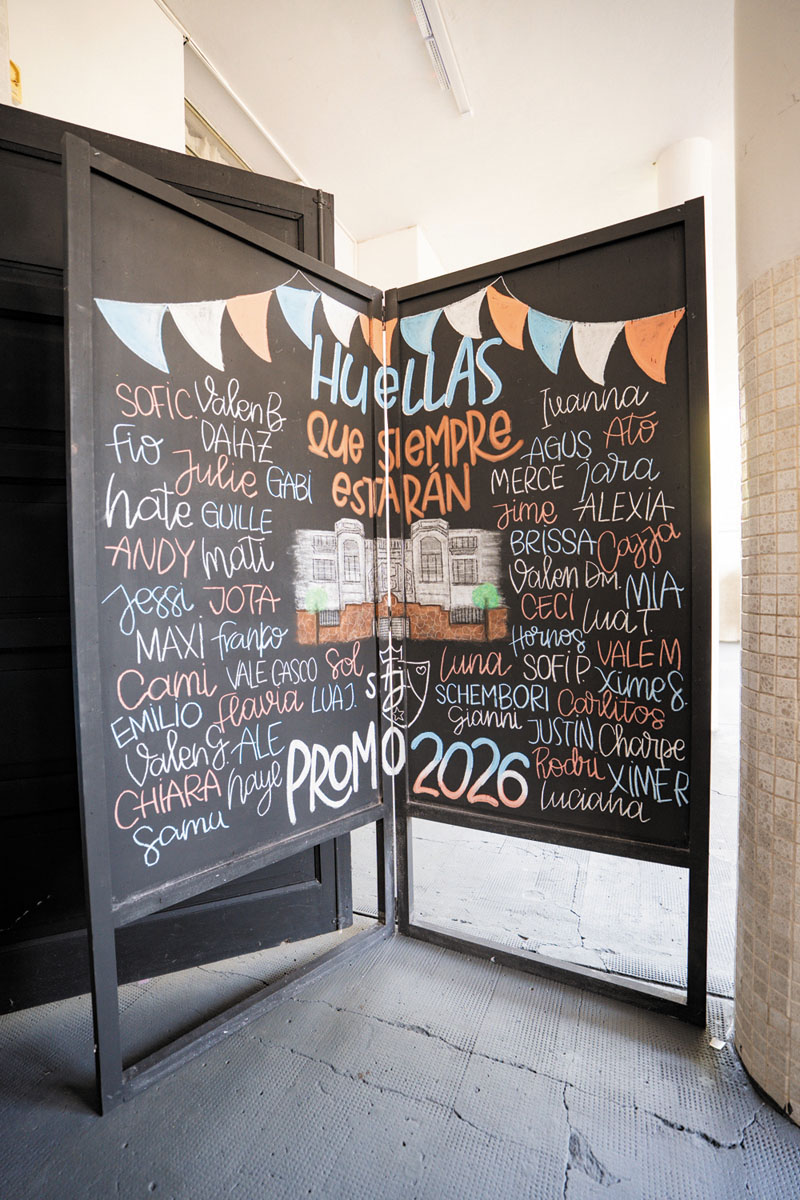 HUELLAS
QUE SIEMPRE
ESTARÁN
SOFI C. Valen B.
Fio DAIAZ
Julie GABI
Nate GUILLE
ANDY Mati
Jessi JOTA
MAXI Franfo
Cami VALE GASCO Sol
EMILIO Flavia LUA J.
Valen G. ALE
CHIARA Naye
Samu
Ivanna
AGUS Ato
MERCE Jara
Jime ALEXIA
BRISSA Cazza
Valen Dm. MIA
CECI Lua T.
Hornos VALE M
Luna SOFI P. Xime S.
SCHEMBORI Carlitos
Gianni JUSTÍN Charpe
Rodri XIMER
Luciana
PROMO 2026